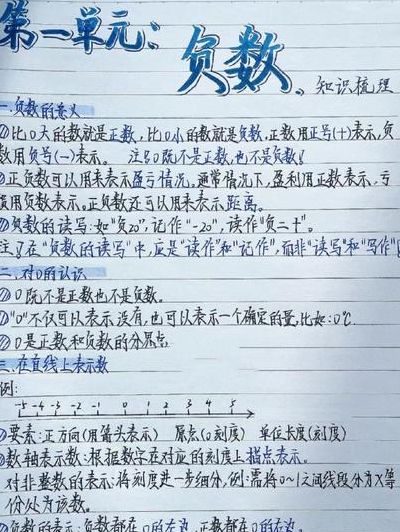 第一单元:
负数。知识梳理
一.负数的意义
①比0大的数就是正数,比0小的数就是负数,正数用正号(+)表示,负
数用负号(一)表示。 注:0既不是正数,也不是负数!
②正负数可以用来表示盈亏情况。通常情况下,盈利用正数表示,亏
损用负数表示。正负数还可以用来表示距离。
③负数的读写:如"负20",记作"-20",读作"负二十"。
注:在"负数的读写"中,应是"读作"和"记作",而非"读写"和"写作"!
二.对0的认识
①0既不是正数也不是负数。
②"0"不仅可以表示没有,也可以表示一个确定的量,比如:0℃
③0是正数和负数的分界点
三.在直线上表示数
例:
-5 -4 -3 -2 -1 0 1 2 3 4 5
①要素:正方向(用箭头表示) 原点(0刻度) 单位长度(刻度)
②数轴表示数:根据数字在对应的刻度上描点表示。
对非整数的表示:将刻度进一步细分,例:需将0~1之间线段分为X等
份处为该数。
负数的表示:负数都在0的左边,正数都在0的右边。